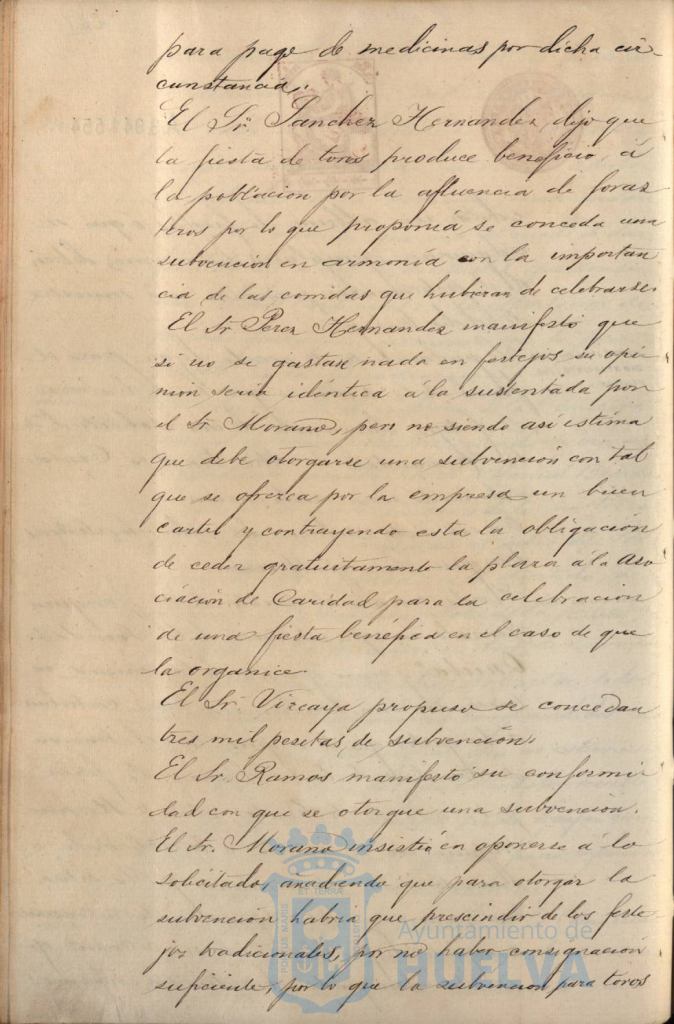 para pago de medicinas por dicha cir-
cunstancia.
El Sr. Sanchez Hernandez, dijo que
la fiesta de toros produce beneficio, á
la poblacion por la afluencia de foras
teros por lo que proponia se conceda una
subvencion en armonía con la importan
cia de las corridas que hubieran de celebrarse.
El Sr. Perez Hernandez manifestó que
si no se gastase nada en festejos su opi
nion seria idéntica á la sustentada por
el Sr. Morano, pero no siendo asi estima
que debe otorgarse una subvención con tal
que se ofrezca por la empresa un buen
cartel y contrayendo esta la obligación
de ceder gratuitamente la plaza á la Aso
ciación de Caridad para la celebracion
de una fiesta benéfica en el caso de que
la organice
El Sr. Vizcaya propuso se concedan
tres mil pesetas de subvención.
El Sr. Ramos manifestó su conformi
dad con que se otorgue una subvencion.
El Sr. Morano insistió en oponerse á lo
solicitado, anadiendo que para otorgar la
subvencion habria que prescindir de los feste
jos tradicionales, por no haber consignacion
suficiente, por lo que la subvencion para toros
Ayuntamiento de
HUELVA